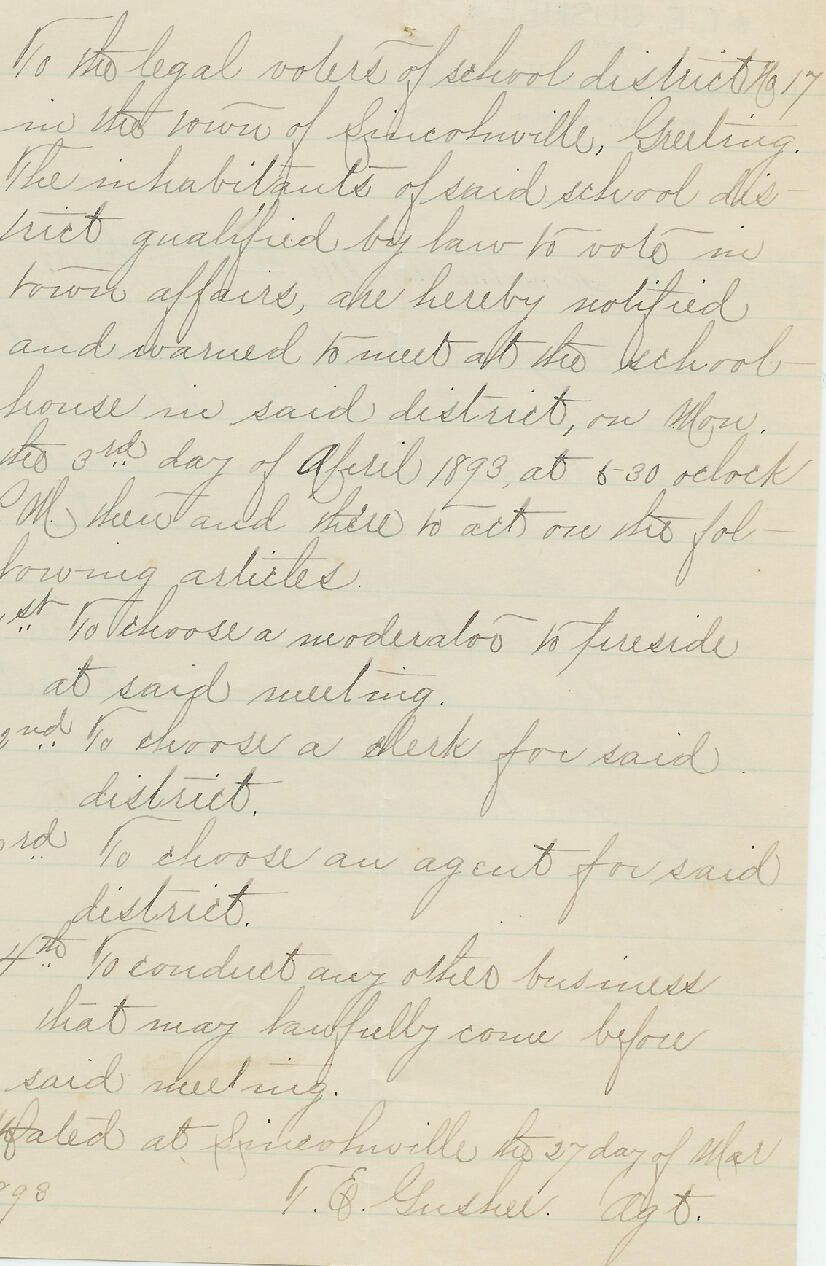 To the legal voters of school district No 17
in the town of Lincolnville, Greeting.
The inhabitants of said school dis-
trict qualified by law to vote in
town affairs, are hereby notified
and warned to meet at the school-
house in said district, on Mon.
the 3rd day of April 1893, at 6-30 oclock
M. then and there to act on the fol-
lowing articles.
1st To choose a moderator to preside
at said meeting.
2nd To choose a clerk for said
district.
rd To choose an agent for said
district.
4th To conduct any other business
that may lawfully come before
said meeting.
Dated at Lincolnville the 27 day of Mar
893 T. E. Gushee. Agt.